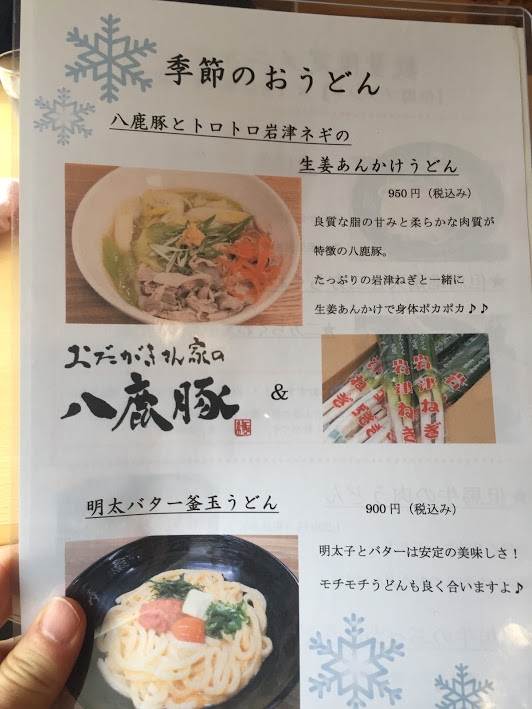 季節のおうどん
八鹿豚とトロトロ岩津ネギの
生姜あんかけうどん
950円（税込み）
良質な脂の甘みと柔らかな肉質が
特徴の八鹿豚。
たっぷりの岩津ねぎと一緒に
生姜あんかけで身体ポカポカ♪♪
おだがきさん家の
八鹿豚
&
岩津ねぎ
岩津ねぎ
明太バター釜玉うどん
900円（税込み）
明太子とバターは安定の美味しさ！
モチモチうどんも良く合いますよ♪